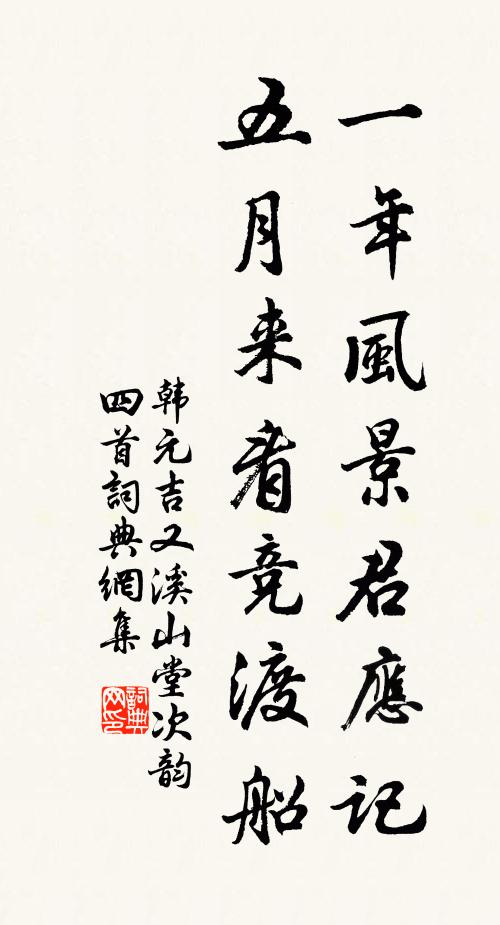 一年風景君應記
五月来看竞渡船
韩元吉又溪山堂次韵
四首詞典網集
詞典网印